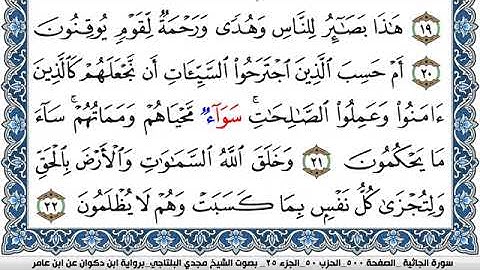 ١٩ هَٰذَا بَصَٰٓئِرُ لِلنَّاسِ وَهُدٗى وَرَحۡمَةٞ لِّقَوۡمٖ يُوقِنُونَ
٢٠ أَمۡ حَسِبَ ٱلَّذِينَ ٱجۡتَرَحُواْ ٱلسَّيِّـَٔاتِ أَن نَّجۡعَلَهُمۡ كَٱلَّذِينَ
ءَامَنُواْ وَعَمِلُواْ ٱلصَّٰلِحَٰتِ سَوَآءٞ مَّحۡيَاهُمۡ وَمَمَاتُهُمۡۚ سَآءَ
مَا يَحۡكُمُونَ ٢١ وَخَلَقَ ٱللَّهُ ٱلسَّمَٰوَٰتِ وَٱلۡأَرۡضَ بِٱلۡحَقِّ
وَلِتُجۡزَىٰ كُلُّ نَفۡسِۭ بِمَا كَسَبَتۡ وَهُمۡ لَا يُظۡلَمُونَ ٢٢
سورة الجاثية_ الصفحة ٥٠٠_ الحزب ٥٠_ الجزء ٢٥_ بصوت الشيخ مجدي البلتاجي_برواية ابن ذكوان عن ابن عامر